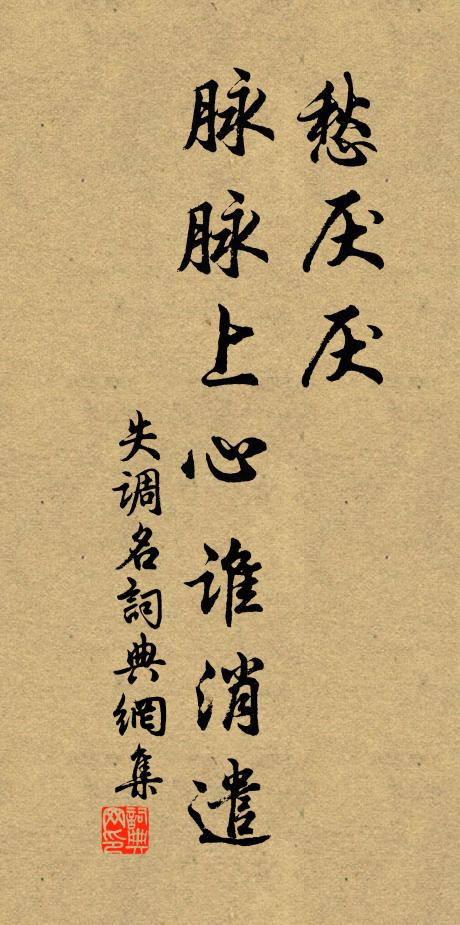 愁厌厌
脉脉上心谁消遣
失调名詞典網集
詞典网印